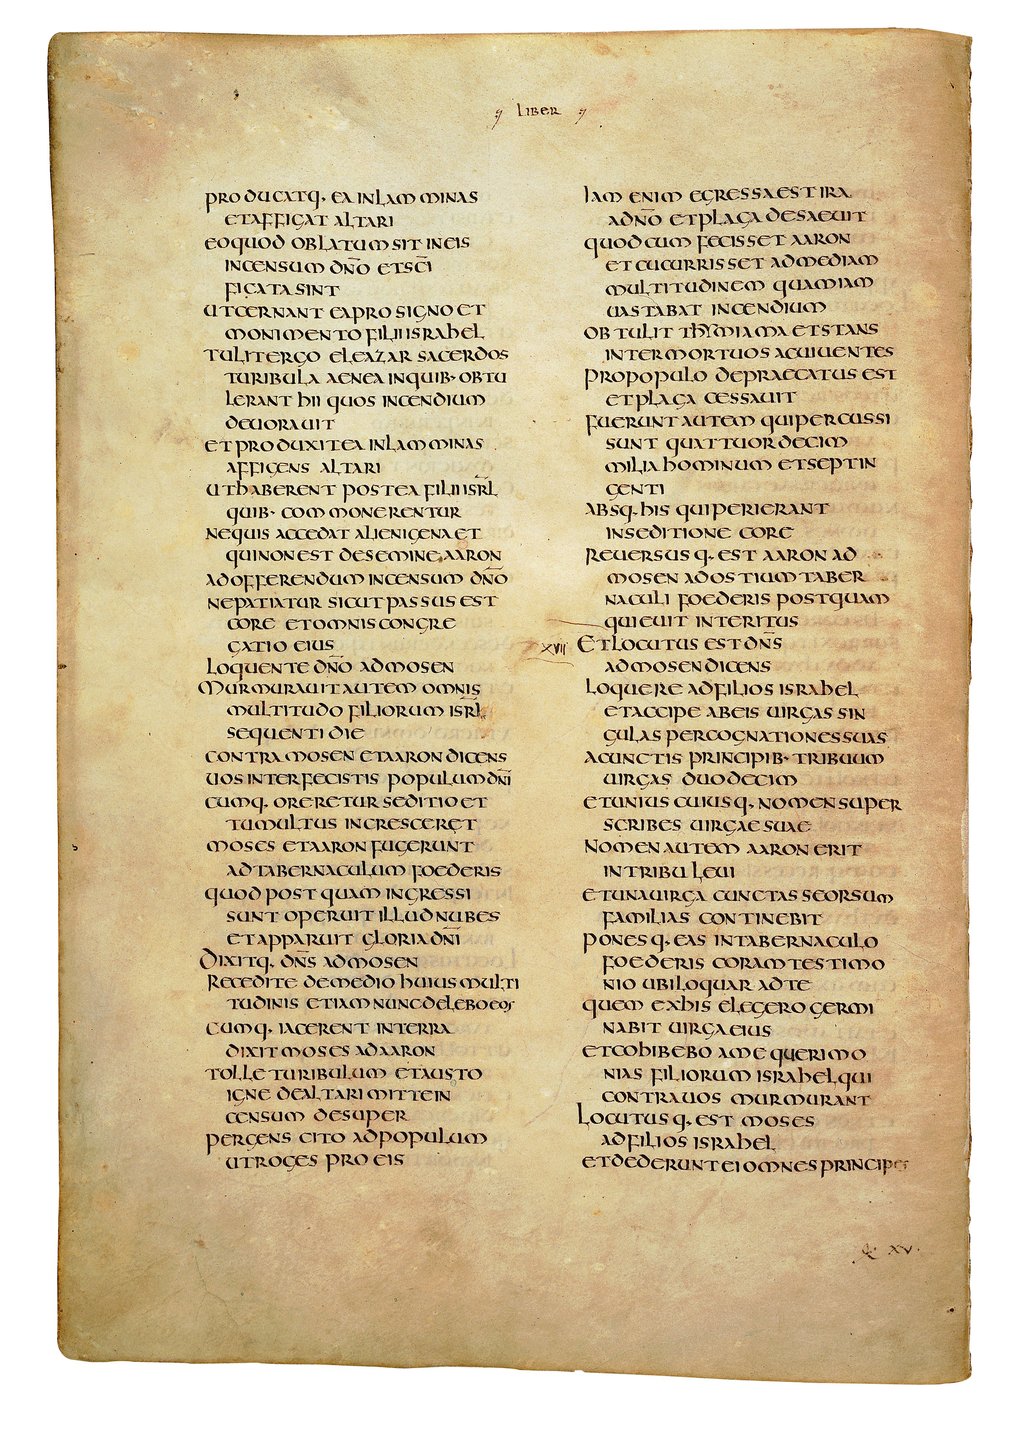 LIBER
producatq· ea inlamminas
et affigat altari
eo quod oblatum sit in eis
incensum dn̄o et sc̄i
ficata sint
ut cernant ea pro signo et
monimento filii israhel
tulit ergo eleazar sacerdos
turibula aenea in quib· obtu
lerant hii quos incendium
devoravit
et produxit ea inlamminas
affigens altari
ut haberent postea filii isrl̄
quib· commonerentur
ne quis accedat alienigena et
qui non est de semine aaron
ad offerendum incensum dn̄o
ne patiatur sicut passus est
core et omnis congre
gatio eius
loquente dn̄o ad mosen
Murmuravit autem omnis
multitudo filiorum isrl̄
sequenti die
contra mosen et aaron dicens
vos interfecistis populum dn̄i
cumq· oreretur seditio et
tumultus incresceret
moses et aaron fugerunt
ad tabernaculum foederis
quod postquam ingressi
sunt operuit illud nubes
et apparuit gloria dn̄i
Dixitq· dn̄s ad mosen
Recedite de medio huius multi
tudinis etiam nunc delebo eos
cumq· iacerent in terra
dixit moses ad aaron
tolle turibulum et austo
igne de altari mitte in
censum desuper
pergens cito ad populum
ut roges pro eis
Iam enim egressa est ira
a dn̄o et plaga desaevit
quod cum fecisset aaron
et cucurrisset ad mediam
multitudinem quam iam
vastabat incendium
obtulit thymiama et stans
inter mortuos ac viventes
pro populo depraecatus est
et plaga cessavit
fuerunt autem qui percussi
sunt quattuordecim
milia hominum et septin
genti
absq· his qui perierant
in seditione core
Reversusq· est aaron ad
mosen ad ostium taber
naculi foederis postquam
quievit interitus
XVII Et locutus est dn̄s
ad mosen dicens
Loquere ad filios israhel
et accipe ab eis virgas sin
gulas per cognationes suas
a cunctis principib· tribuum
virgas duodecim
et unius cuiusq· nomen super
scribes virgae suae
Nomen autem aaron erit
in tribu levi
et una virga cunctas seorsum
familias continebit
ponesq· eas in tabernaculo
foederis coram testimo
nio ubi loquar ad te
quem ex his elegero germi
nabit virga eius
et cohibebo a me querimo
nias filiorum israhel qui
contra vos murmurant
Locutusq· est moses
ad filios israhel
et dederunt ei omnes principes
Q· XV·